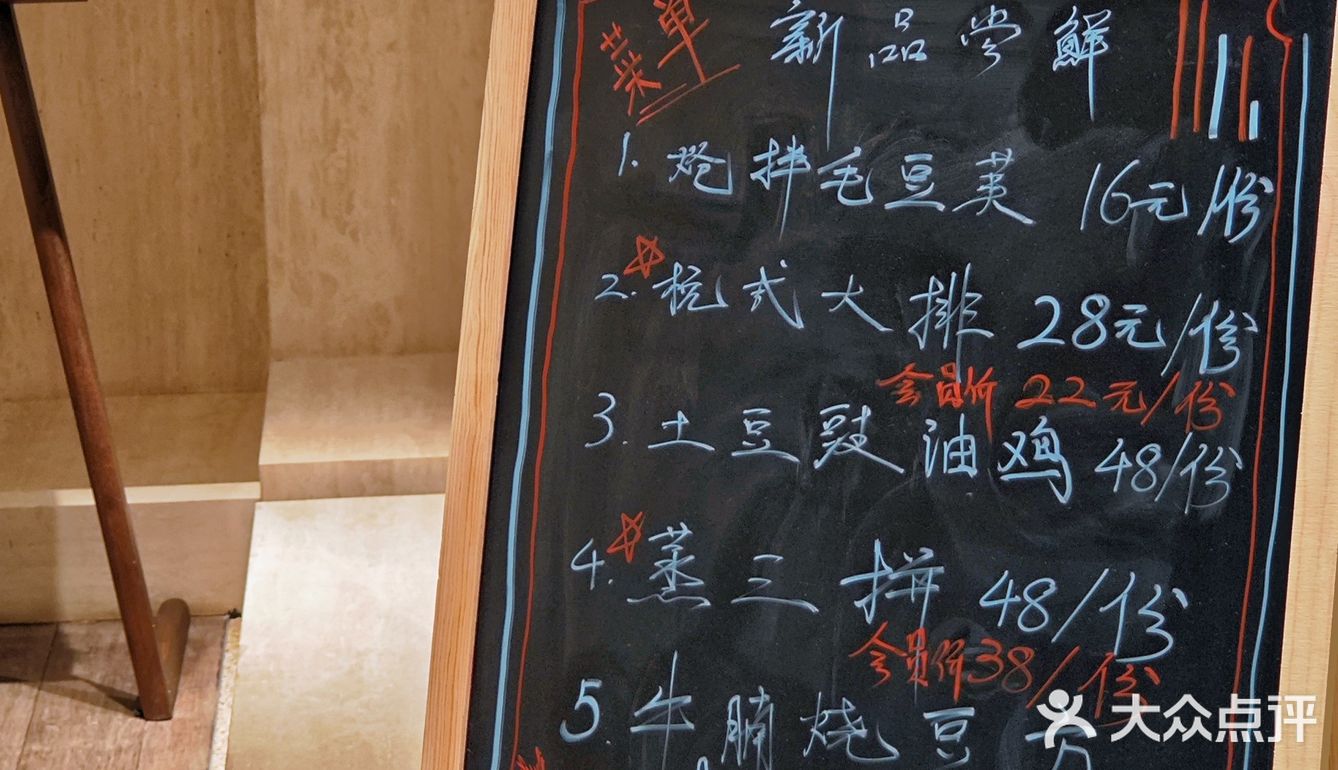 菜单
新品尝鲜
1. 炝拌毛豆荚 16元/份
2. 杭式大排 28元/份
会员价 22元/份
3. 土豆豉油鸡 48/份
4. 蒸三拼 48/份
会员价38/份
5. 牛腩烧豆方
大众点评